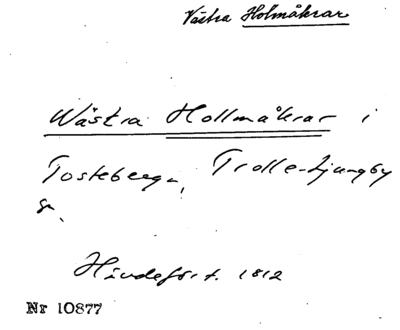 Västra Holmåkrar
Wästra Hollmåkrar i
Tosteberga, Trolle-Ljungby
sn.
Häradsf. t. 1812
Nr 10877